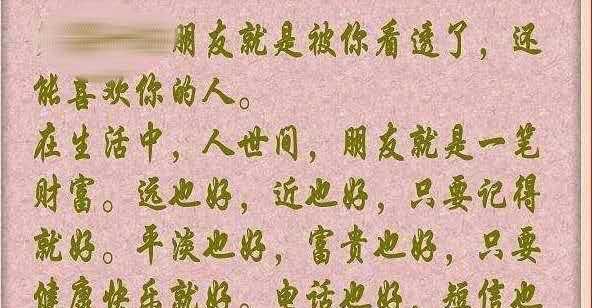 朋友就是被你看透了，还
能喜欢你的人。
在生活中，人世间，朋友就是一笔
财富。远也好，近也好，只要记得
就好。平淡也好，富贵也好，只要
健康快乐就好。电话也好，短信也